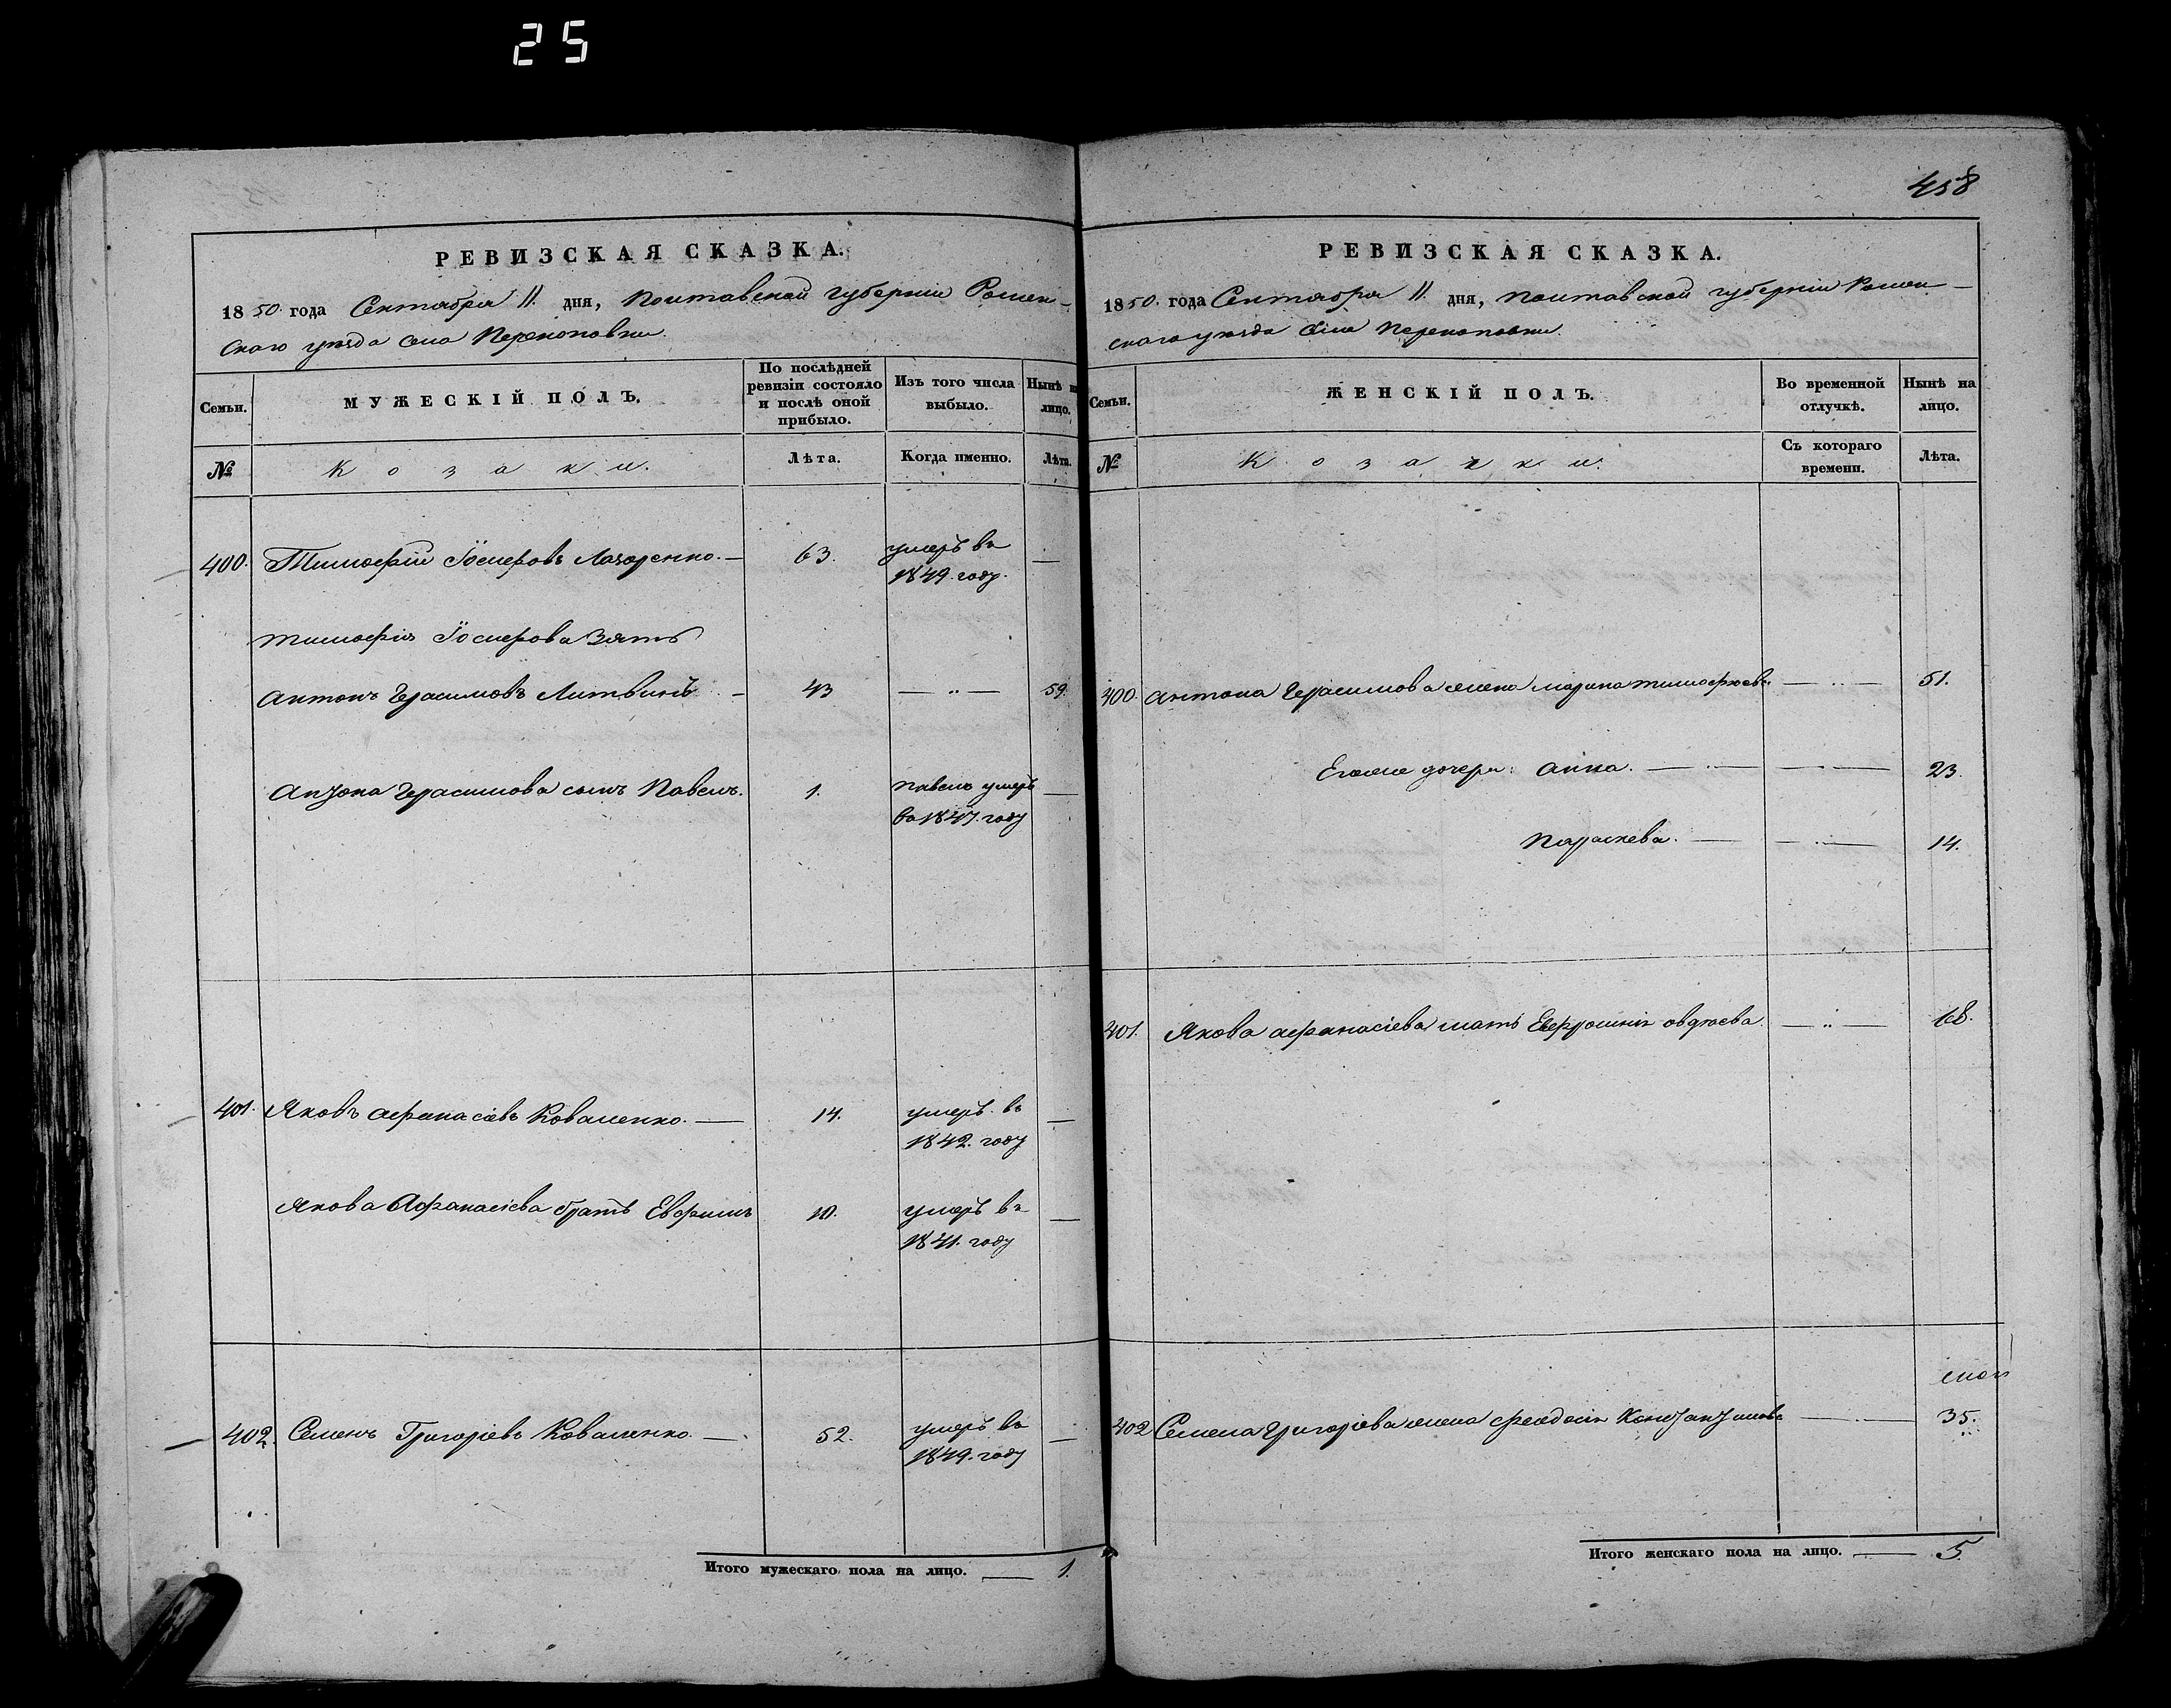 25
458
РЕВИЗСКАЯ СКАЗКА.
1850. года Сентября 11. дня, Полтавской губерніи Ромен-
скаго уѣзда села Перекоповки.
Семьи.
МУЖЕСКІЙ ПОЛЪ.
По послѣдней ревизіи состояло и послѣ оной прибыло.
Изъ того числа выбыло.
Нынѣ на лицо.
№
Козаки.
Лѣта.
Когда именно.
Лѣта.
400. Тимофѣй Лазаренко. — 63. умеръ въ —
1849. году.
Тимофѣя зять
Антонъ Герасимовъ Литвинъ. — 43 — „ — 59.
Антона Герасимова сынъ Павелъ. 1. Павелъ умеръ —
въ 1847. году
401. Яковъ Афанасіевъ Коваленко. — 14. умеръ въ —
1842. году
Якова Афанасіева братъ Евфимъ 10. умеръ въ —
1841. году
402. Семенъ Григоріевъ Коваленко. — 52. умеръ въ —
1849. году
Итого мужескаго пола на лицо. — 1.
РЕВИЗСКАЯ СКАЗКА.
1850. года Сентября 11. дня, Полтавской губерніи Ромен-
скаго уѣзда села Перекоповки.
Семьи.
ЖЕНСКІЙ ПОЛЪ.
Во временной отлучкѣ.
Нынѣ на лицо.
№
Козачки.
Съ котораго времени.
Лѣта.
400. Антона Герасимова жена Марина Тимофѣева — „ — 51.
Его же дочери: Анна. — „ — 23.
Параскева. — „ — 14.
401. Якова Афанасіева мать Евфросинія Овдѣева. — „ — 68.
402 Семена Григоріева жена Феодосія Константинова — „ — 35.
Итого женскаго пола на лицо. — 5.